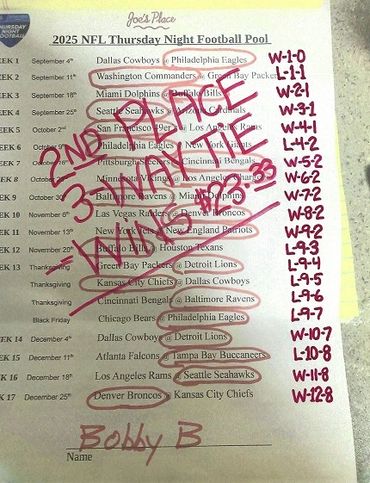 Joe's Place
THURSDAY NIGHT FOOTBALL
2025 NFL Thursday Night Football Pool
EEK 1 September 4th Dallas Cowboys @ Philadelphia Eagles W-1-0
EEK 2 September 11th Washington Commanders @ Green Bay Packer L-1-1
EEK 3 September 18th Miami Dolphins @ Buffalo Bills W-2-1
EEK 4 September 25th Seattle Seahawks @ Arizona Cardinals W-3-1
EEK 5 October 2nd San Francisco 49er @ Los Angeles Rams W-4-1
EEK 6 October Philadelphia Eagles @ New York L-4-2
EEK 7 October 16th Pittsburgh @ Cincinnati Bengals W-5-2
EEK 8 October Minnesota Vikings @ Los Angeles W-6-2
EEK 9 October Baltimore Ravens @ Miami W-7-2
EEK 10 November 6th Las Vegas Raiders @ Denver Broncos W-8-2
EEK 11 November 13th New York @ New England Patriots W-9-2
EEK 12 November 20th Buffalo Bills @ Houston Texans L-9-3
EEK 13 Thanksgiving Green Bay Packers @ Detroit Lions L-9-4
Thanksgiving Kansas City Chiefs @ Dallas Cowboys L-9-5
Thanksgiving Cincinnati Bengals @ Baltimore Ravens L-9-6
Black Friday Chicago Bears @ Philadelphia Eagles L-9-7
EEK 14 December 4th Dallas Cowboys @ Detroit Lions W-10-7
EEK 15 December 11th Atlanta Falcons @ Tampa Bay Buccaneers L-10-8
EEK 16 December 18th Los Angeles Rams @ Seattle Seahawks W-11-8
EK 17 December 25th Denver Broncos @ Kansas City Chiefs W-12-8
2ND PLACE
3-WAY TIE
=WINS $23.33
Bobby B
Name